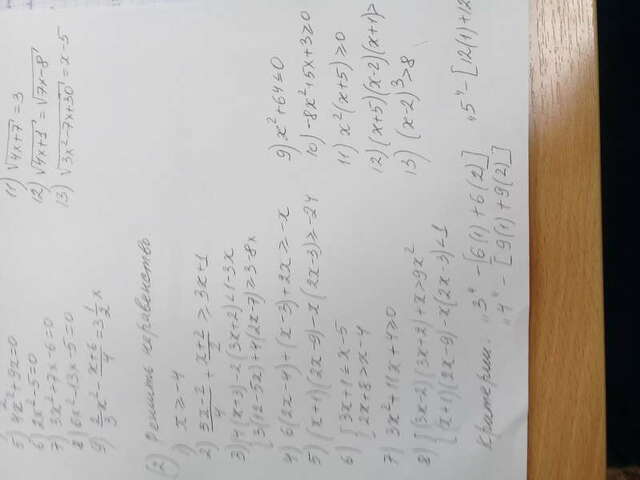 5) 4x² + 9x = 0
6) 2x² - 5 = 0
7) 3x² + 7x - 6 = 0
8) 6x² - 13x - 5 = 0
9) 2/3 x² - (x+6)/4 = 3 1/2 x
11) √(4x+7) = 3
12) √(4x+1) = √(7x-8)
13) √(3x²-7x+30) = x-5
(2) Решить неравенство
1) x ≥ -4
2) (5x-2)/4 + (x+2)/2 ≥ 3x+1
3) { 4(x+3) - 2(3x+2) < 1-3x
3(12-5x) + 4(2x-7) ≥ 3-8x
4) 6(2x-4) + (x-3) + 2x ≥ -x
5) (x+1)(2x-9) - x(2x-3) ≥ -24
6) { 3x+1 ≤ x-5
2x+8 > x-4
7) 3x² + 11x + 4 ≥ 0
8) { (3x-2)(3x+2) + x > 9x²
(x+1)(2x-9) - x(2x-3) < 1
9) x² + 64 ≤ 0
10) -8x² + 5x + 3 ≥ 0
11) x²(x+5) ≥ 0
12) (x+5)(x-2)(x+1) >
13) (x-2)³ > 8
Критерии: "3" - [6(1) + 6(2)]
"4" - [9(1) + 9(2)]
"5" - [12(1) + 12